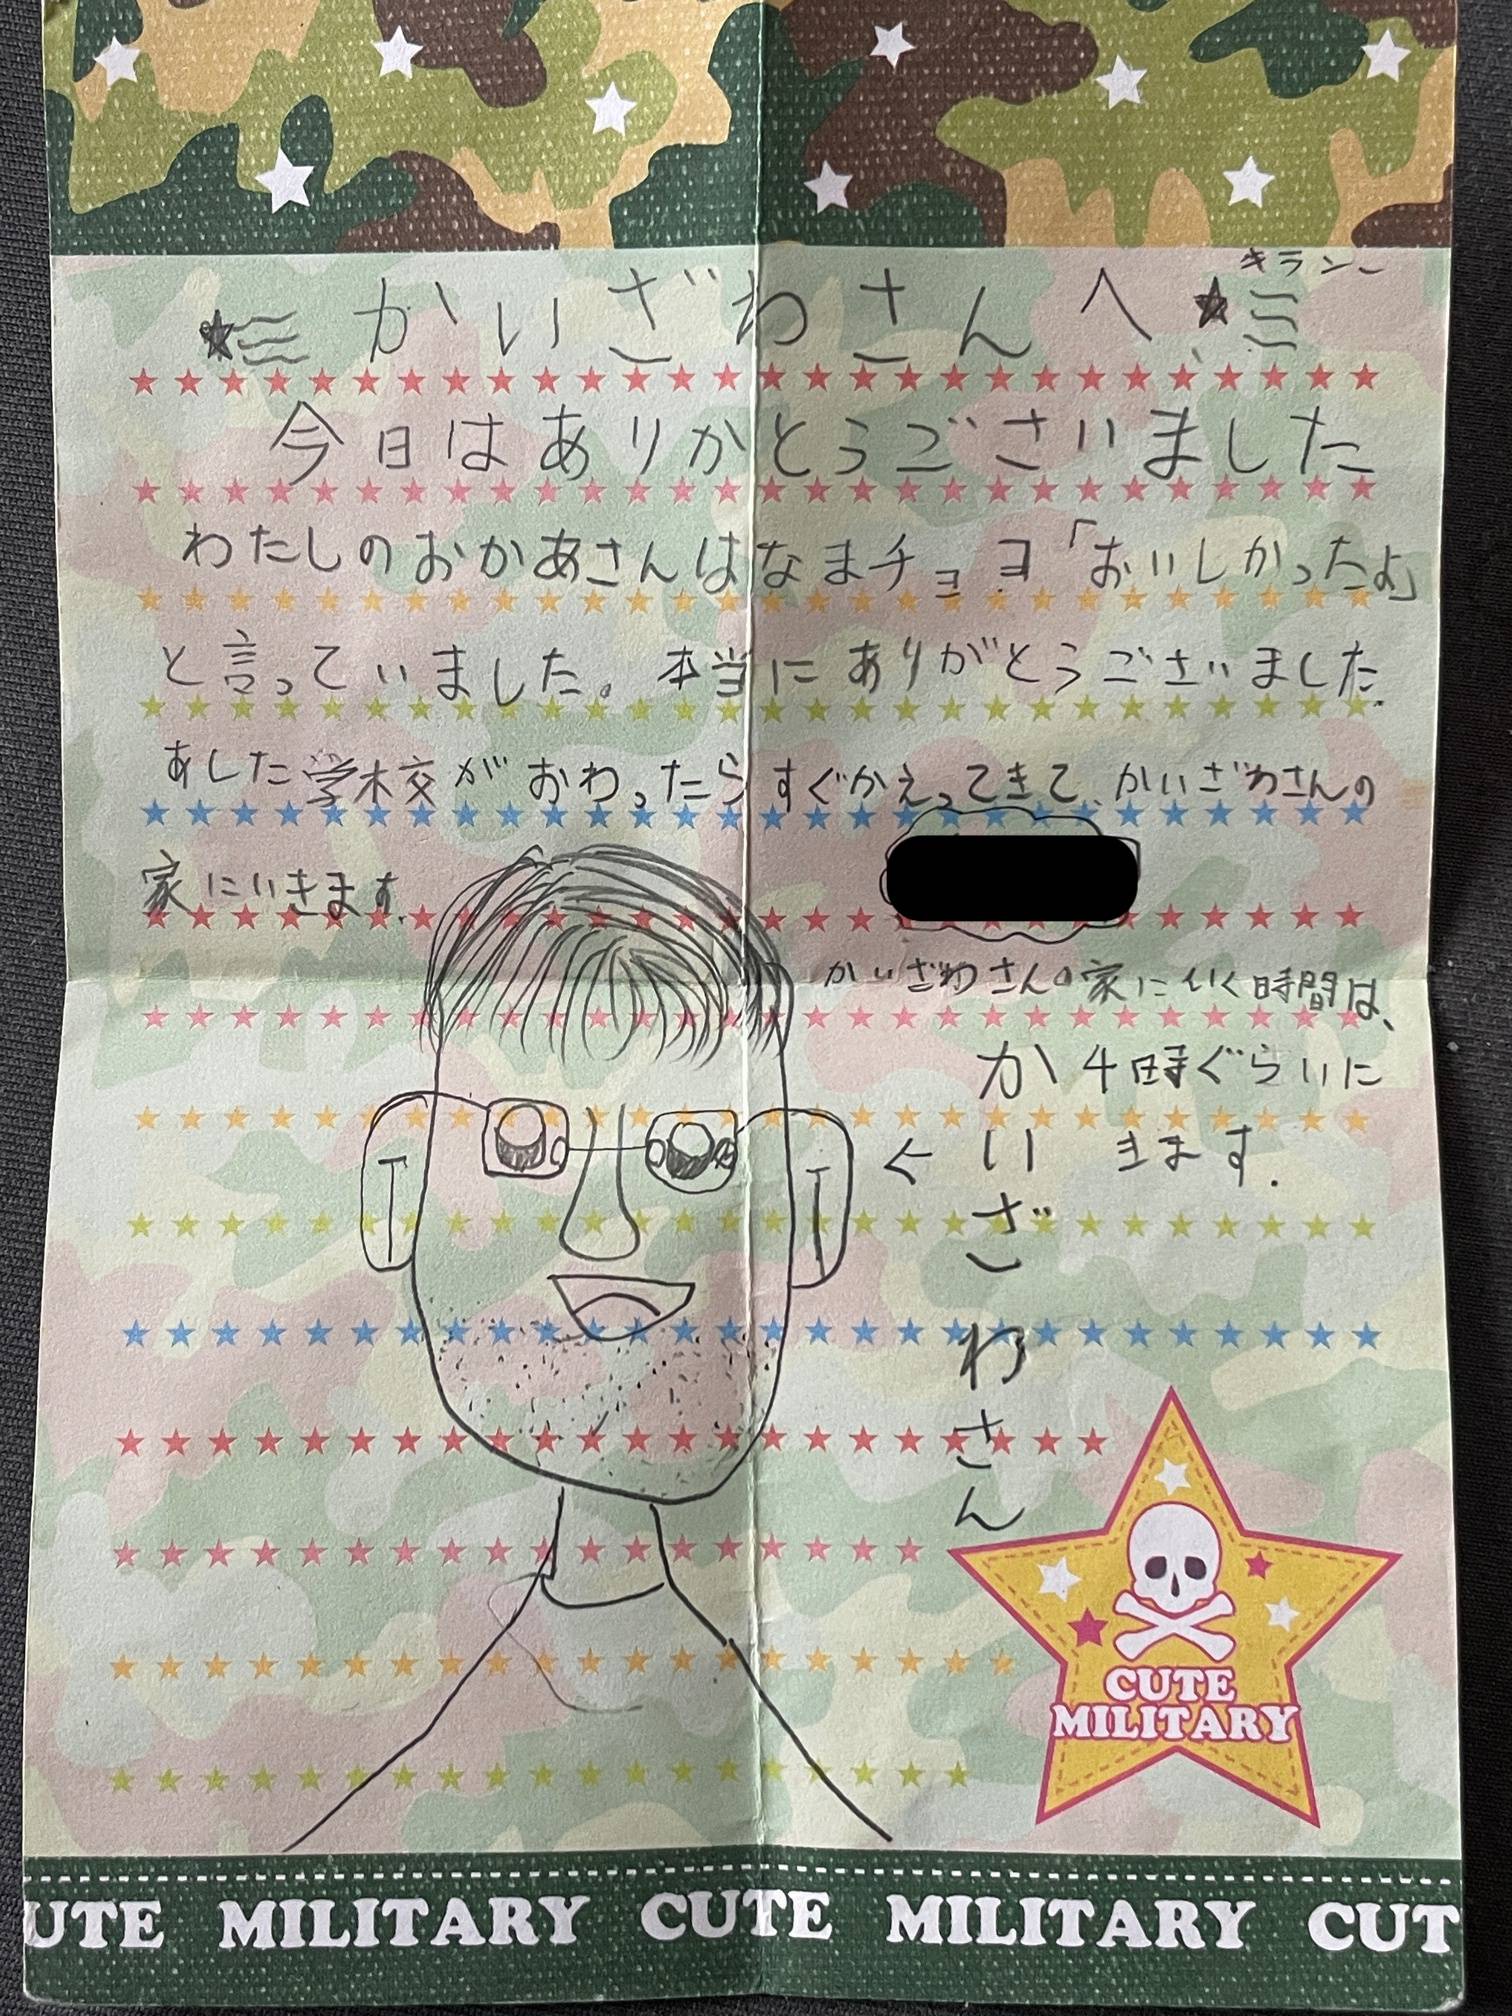 キラン〜
かいざわさんへ
今日はありかとうごさいました
わたしのおかあさんはなまチョヨ「おいしかったよ」
と言っていました。本当にありがとうごさいました.
あした学校がおわったらすぐかえってきて、かいざわさんの
家にいきます.
かいざわさんの家にいく時間は、
4時ぐらいに
きます.
←
かいざわさん
CUTE
MILITARY
UTE MILITARY CUTE MILITARY CUT